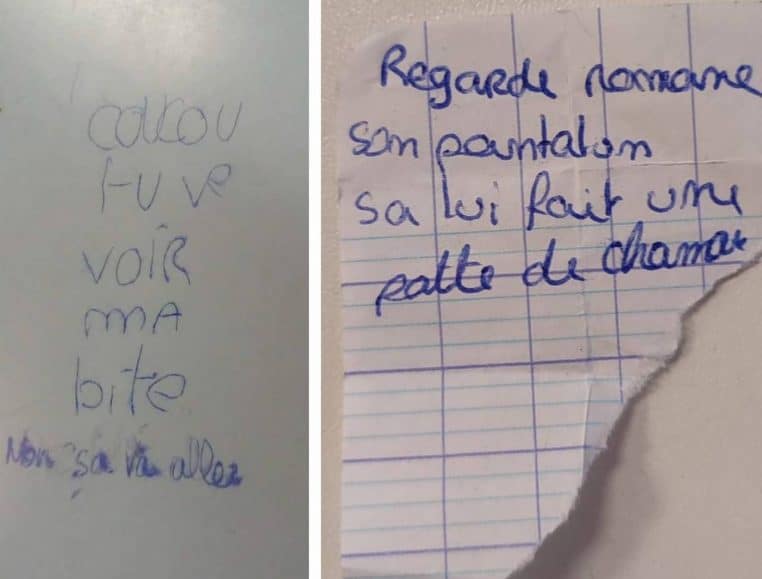 coucou
tu ve
voiR
mA
bite
Non sa va aller
Regarde romane
son pantalon
sa lui fait une
patte de chamau